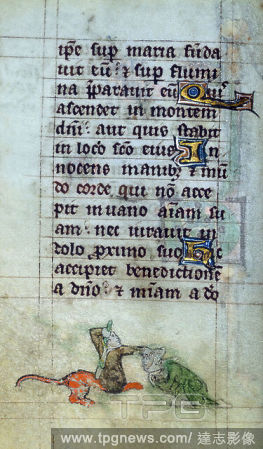 ip̄e sup maria fūda
uit eū: ⁊ sup flumi
na p̄parauit eū Quis
ascendet in montem
dn̄i: aut quis stabit
in loco sc̄o eius In
nocens manibꝫ ⁊ mū
do corde qui nō acce
pit in uano aīam su
am: nec iurauit in
dolo proximo suo Hic
accipiet benedictionē
a dn̄o: ⁊ mīam a dō
TPG
www.tpgnews.com/ 達志影像